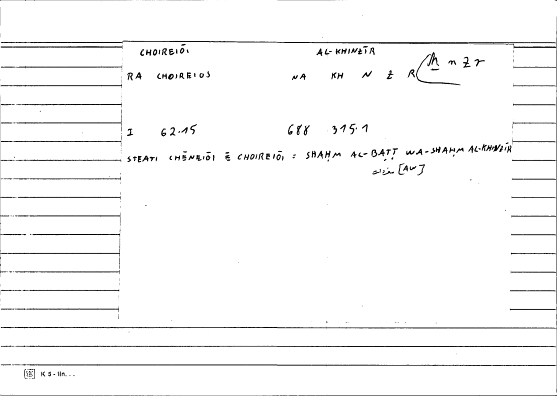 CHOIREIŌI AL-KHINZĪR
RA CHOIREIOS NA KH N Z R ḫ n z r
I 62.15 688 315.1
STEATI CHĒNEIŌI Ē CHOIREIŌI = SHAḤM AL-BAṬṬ WA-SHAḤM AL-KHINZĪR
[AW]
K S - lln. . .